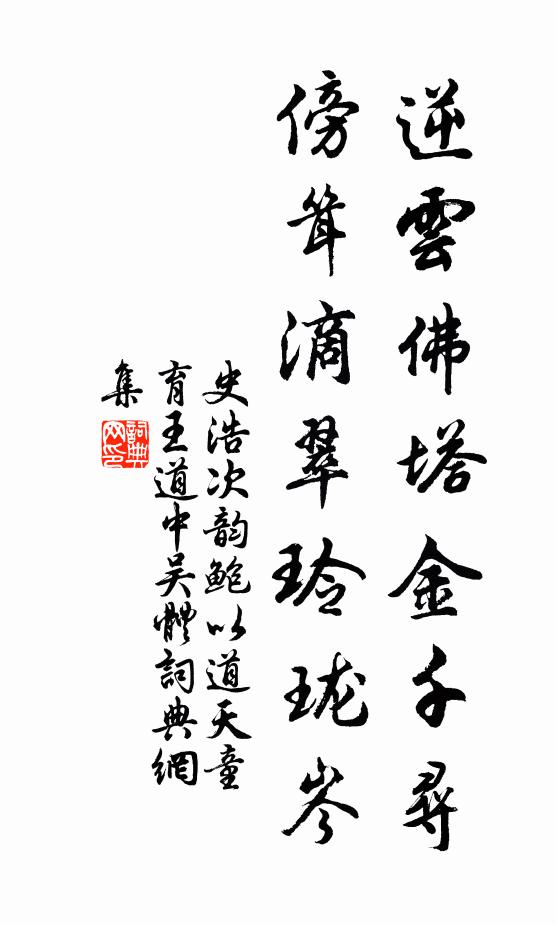 逆雲佛塔金千尋
傍耸滴翠玲珑岑
史浩次韵鲍以道天童
育王道中吴體詞典網
集
詞典网印